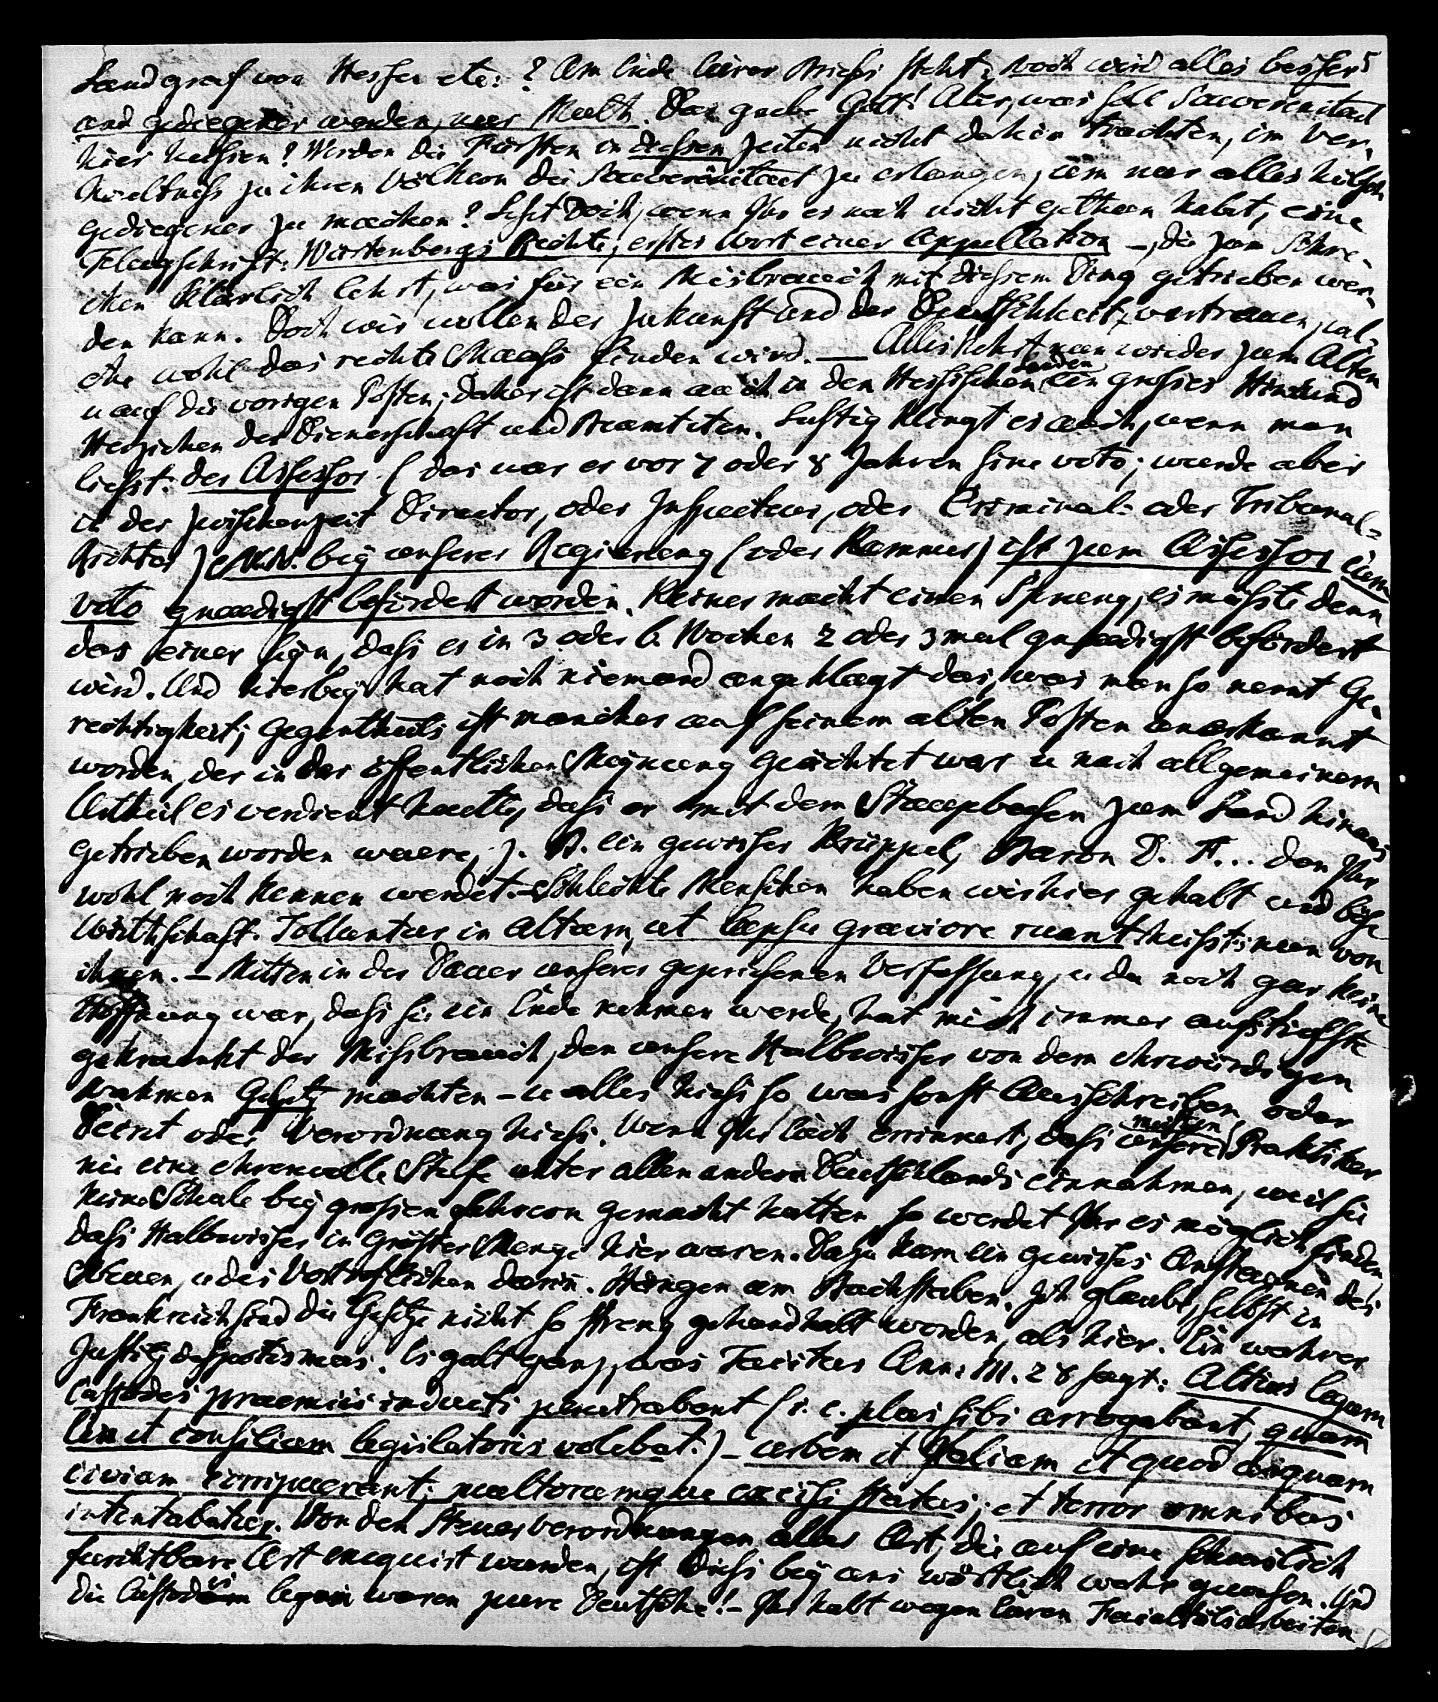 Landgraf von Hessen etc: ? Am Ende Eures Briefs steht: noch wird alles besser
und gediegener werden, nur Muth. Das gebe Gott! Aber, was soll Souverenitaet
hier heissen? Werden die Fürsten in diesen Zeiten nicht dahin trachten, im Ver-
haeltniss zu ihren Völkern die Souverenitaet zu erlangen, um nur alles hübsch
gediegener zu machen? Lest doch, wenn Ihr es noch nicht gethan habt, eine
Flugschrift: Wirtenbergs Rechte, erstes Wort einer Appellation –, die zum Schre-
cken klärlich lehrt, was für ein Misbrauch mit diesem Ding getrieben wer-
den kann. Doch wir wollen der Zukunft und der Deutschheit vertrauen, wel-
che wohl das rechte Maass finden wird. — Alles kehrt nun wieder zum Alten
u auf die vorigen Posten; daher ist dann auch in den Hessischen Landen ein grosses Hin und
Herziehen der Dienerschaft und Beamteten. Lustig klingt es auch, wenn man
liest: der Assessor (das war er vor 7 oder 8 Jahren sine voto; wurde aber
in der Zwischenzeit Director, oder Inspecteur, oder Criminal- oder Tribunal-
Richter) N.N. bey unserer Regierung (oder Kammer) ist zum Assessor cum
voto gnaedigst befördert worden. Keiner macht einen Sprung, es müsste denn
das einer seyn, dass er in 3 oder 6. Wochen 2 oder 3 mal gnaedigst befördert
wird. Und hierbey hat noch niemand angeklagt das, was man so nennt Ge-
rechtigkeit; Gegentheils ist mancher auf seinem alten Posten anerkannt
worden, der in der öffentlichen Meynung geächtet war u nach allgemeinem
Urtheil es verdient haette, dass er mit dem Staupbesen zum Land hinaus
getrieben worden waere, z. B. ein gewisser Krüppel, Baron D. F... den Ihr
wohl noch kennen werdet. – Schlechte Menschen haben wir hier gehabt und böse
Wirthschaft. Tolluntur in altum, ut lapsu graviore ruant heisst's nun von
ihnen. – Mitten in der Dauer unserer gepriesenen Verfassung, u da noch gar keine
Hoffnung war, dass sie ein Ende nehmen werde, hat mich immer aufs tiefste
gekraenkt der Missbrauch, den unsere Halbwisser von dem ehrwürdigen
Nahmen Gesetz machten – u alles hiess so was sonst Ausschreiben, oder
Decret oder Verordnung hiess. Wenn Ihr Euch erinnert, dass unsere meisten Praktiker
nie eine ehrenvolle Stelle unter allen andern Deutschlands einnahmen, weil sie
keine Schule bey grossen Lehrern gemacht hatten, so werdet Ihr es möglich finden,
dass Halbwisser in grösster Menge hier waren. Dazu kam ein gewisses Anstaunen des
Neuen, u des Vortreflichen darin. Hängen am Buchstaben. Ich glaube, selbst in
Frankreich sind die Gesetze nicht so streng gehandhabt worden, als hier. Ein wahrer
Justizdespotismus. Es galt ganz, was Tacitus Ann: III. 28 sagt: Altius legum
Custodes praemiis inducti penetrabant (i. e. plus sibi arrogabant, quam
lex et consilium legislatoris volebat.) – urbem et Italiam et quod usquam
civium corripuerant; multorumque excisi status; et terror omnibus
intentabatur. Von den Steuerverordnungen aller Art, die auf eine scheuslich
furchtbare Art enequirt wurden, ist diess bey uns wörtlich wahr gewesen. Und
die Custodes legum waren pure Deutsche! – Ihr habt wegen Euren Facultätsarbeiten